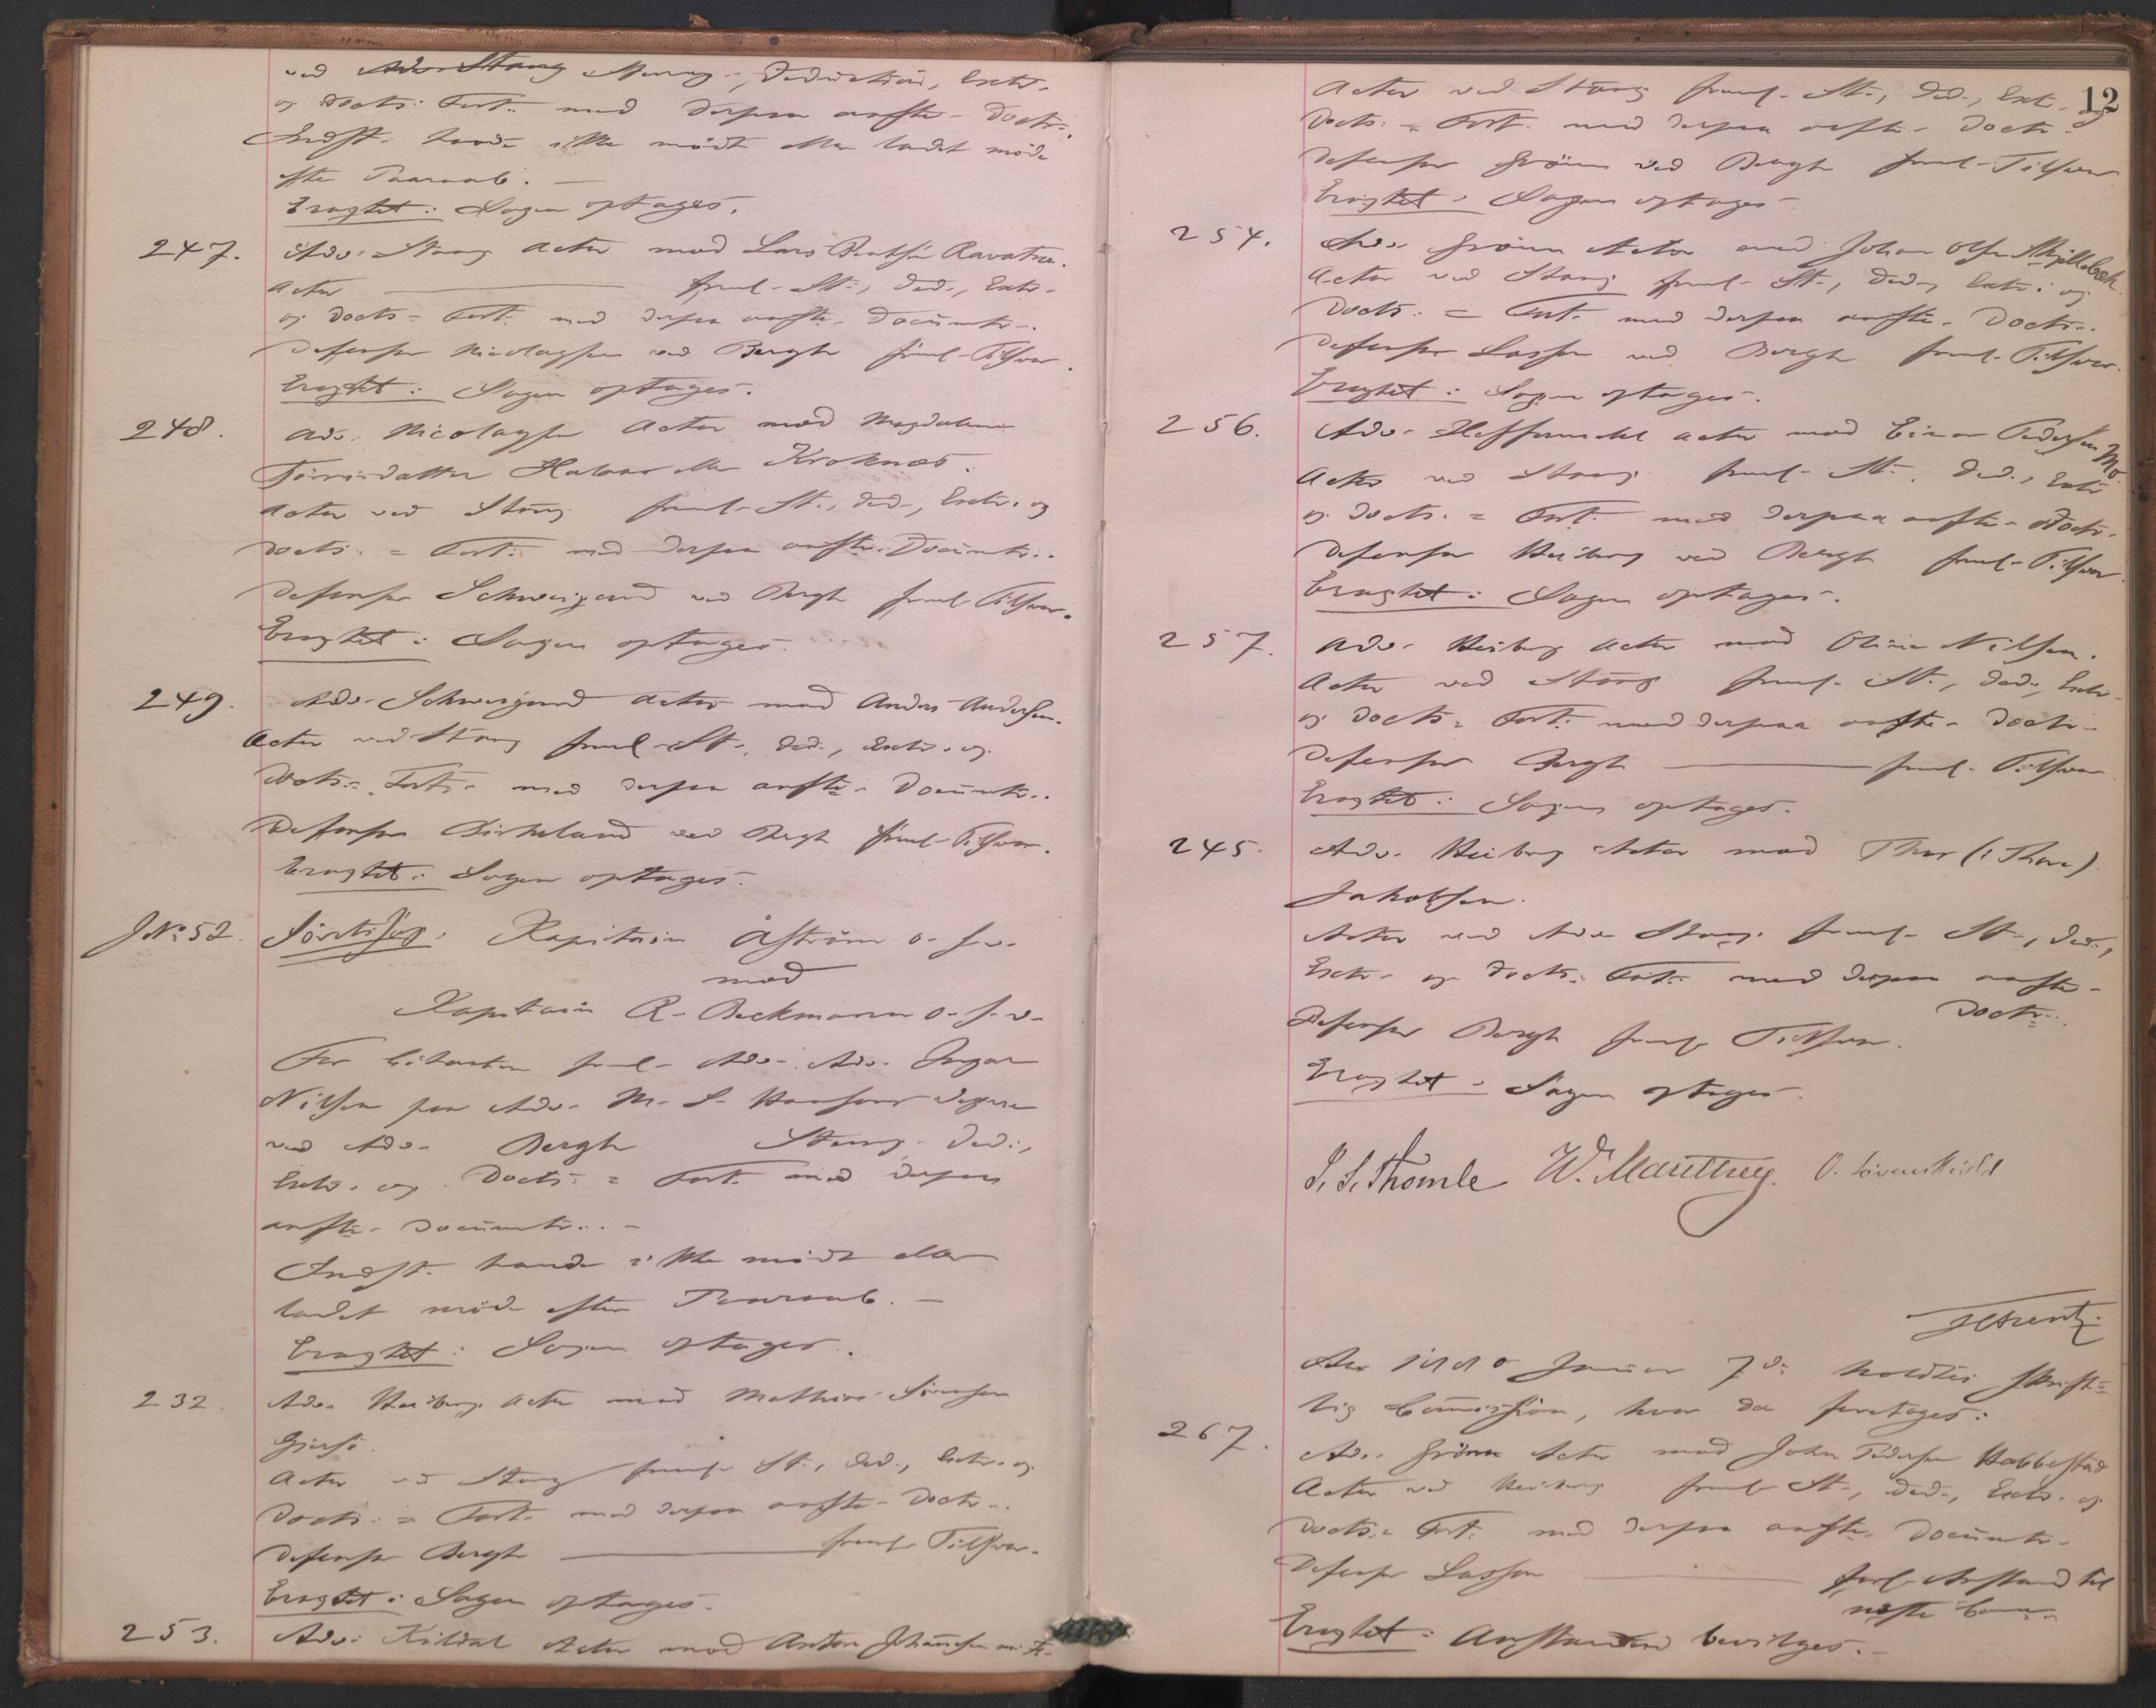 ved Adv. Stang Stevng-, Deduction, Extr.
og Docts: Fort. med derpaa anfte- Doctr.
Indst. havde ikke mödt eller ladet möde
efter Paaraab. —
Eragtet: Sagen optages.
247. Adv. Stang Actor mod Lars Ravatne.
Actor — freml- St., Ded., Extr.
og Docts = Fort. med derpaa anfte- Documtr.
Defensor Nicolaysen ved Bergh freml- Tilsvar.
Eragtet: Sagen optages.
248. Adv. Nicolaysen Actor mod Magdalena
Halvar eller Kroknæs.
Actor ved Stang freml- St., Ded., Extr. og
Docts. = Fort. med derpaa anfte- Documtr.
Defensor Schweigaard ved Bergh freml- Tilsvar.
Eragtet: Sagen optages.
249. Adv. Schweigaard Actor mod Anders Andersen.
Actor ved Stang freml- St., Ded., Extr. og
Docts = Fort. med derpaa anfte- Documtr.
Defensor Birkeland ved Bergh freml- Tilsvar.
Eragtet: Sagen optages.
J No 52. Söretssag: Kapitain Åström o. f. v.
mod
Kapitain R. Beckmann o. f. v.
For Citanten freml- Adv. Adv.
Nilsen paa Adv. M. S. Hansens Vegne
ved Adv. Bergh Stevng- Ded.,
Extr. og Docts = Fort. med derpaa
anfte- Documtr. —
Indst. havde ikke mödt eller
ladet möde efter Paaraab. —
Eragtet: Sagen optages.
232. Adv. Heiberg Actor mod Mathias Sörensen
Gjersö.
Actor ved Stang freml- St., Ded., Extr. og
Docts. = Fort. med derpaa anfte- Doctr.
Defensor Bergh — freml- Tilsvar.
Eragtet: Sagen optages.
253. Adv. Kildal Actor mod Anton Johannesen m. fl.
12
Actor ved Stang freml- St., Ded., Extr. og
Docts. = Fort. med derpaa anfte- Doctr.
Defensor Grönn ved Bergh freml- Tilsvar
Eragtet: Sagen optages.
254. Adv. Grönn Actor mod Johan Olsen Skjellebæk.
Actor ved Stang freml- St., Ded., Extr. og
Docts. = Fort. med derpaa anfte- Doctr.
Defensor Lassen ved Bergh freml- Tilsvar.
Eragtet: Sagen optages.
256. Adv. Heffermehl Actor mod Einar Pedersen Mo.
Actor ved Stang freml- St., Ded., Extr
og Docts. = Fort. med derpaa anfte- Doctr.
Defensor Heiberg ved Bergh freml- Tilsvar.
Eragtet: Sagen optages.
257. Adv. Heiberg Actor mod Oline Nilsen.
Actor ved Stang freml- St., Ded., Extr.
og Docts = Fort. med derpaa anfte- Doctr.
Defensor Bergh — freml- Tilsvar.
Eragtet: Sagen optages.
245. Adv. Heiberg Actor mod Thor (: Thore)
Jakobsen.
Actor ved Adv. Stang freml- St., Ded.,
Extr. og Docts. Fort. med derpaa anfte-
Doctr.
Defensor Bergh freml- Tilsvar.
Eragtet: Sagen optages.
I. S. Thomle W. Mariboe O. Lövenskiold
Aar 1880 Januar 7de holdtes skrift=
lig Commission, hvor da foretages:
267. Adv. Grönn Actor mod John Pedersen Habbestad
Actor ved Heiberg freml- St., Ded., Extr. og
Docts. = Fort. med derpaa anfte- Documtr.
Defensor Lassen — forl- Anstand til
næste Comm.
Eragtet: Anstanden bevilges. —